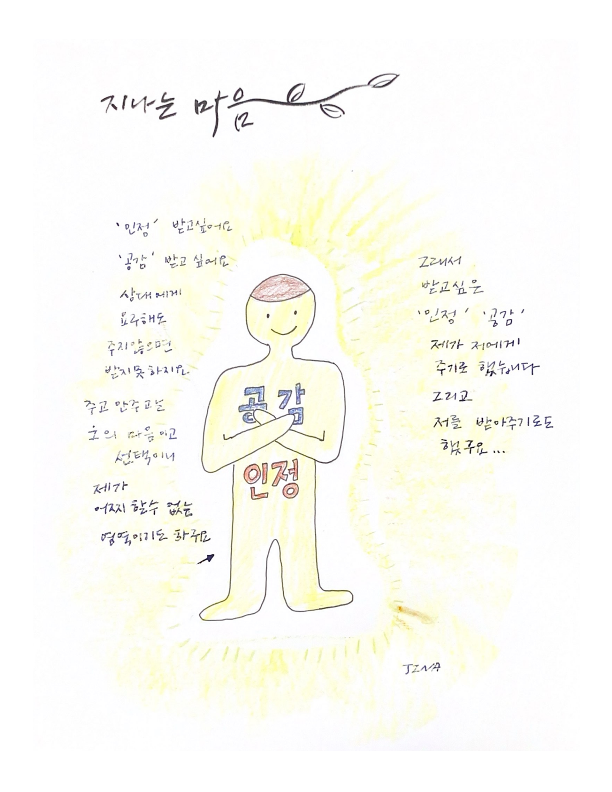 지나는 마음
'인정' 받고싶어요
'공감' 받고 싶어요
상대에게
요구해도
주지않으면
받지못하지요
주고 안주고는
그의 마음이고
선택이니
제가
어찌 할수 없는
영역이기도 하구요
공감
인정
그래서
받고싶은
'인정' '공감'
제가 저에게
주기로 했습니다
그리고
저를 받아주기로도
했구요...
JINA